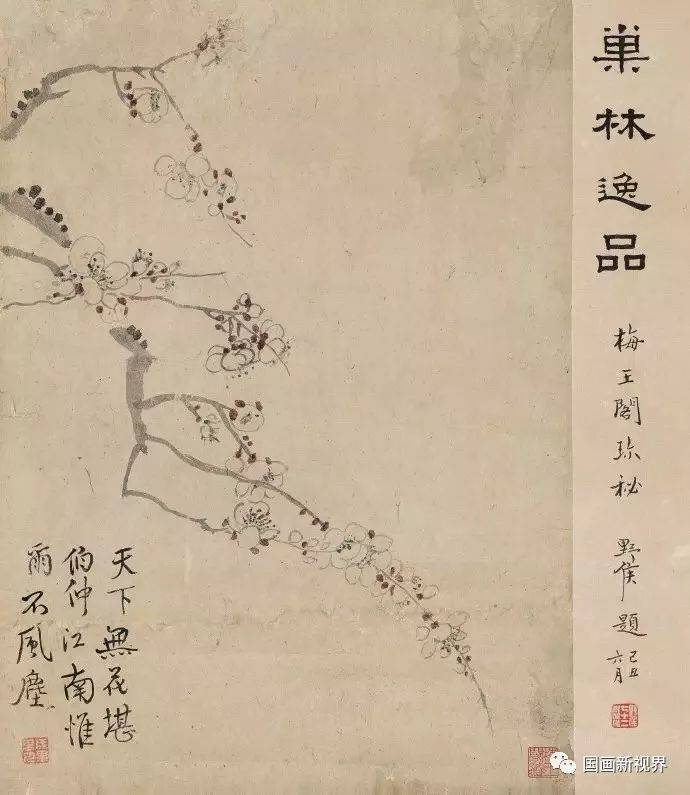 巢林逸品
梅王閣珎秘 野侯題 己丑六月
天下無花堪
伯仲江南惟
爾不風塵
国画新视界